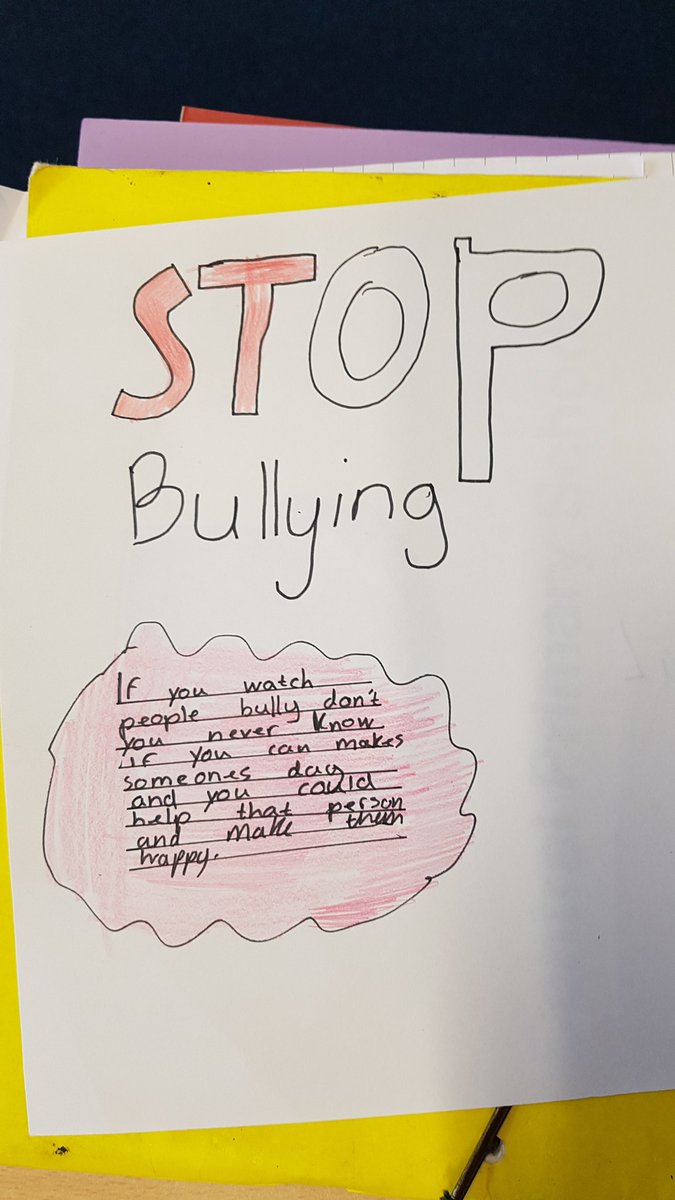 STOP
Bullying
If you watch
people bully don't
you never know
if you can makes
someones day
and you could
help that person
and make them
happy.